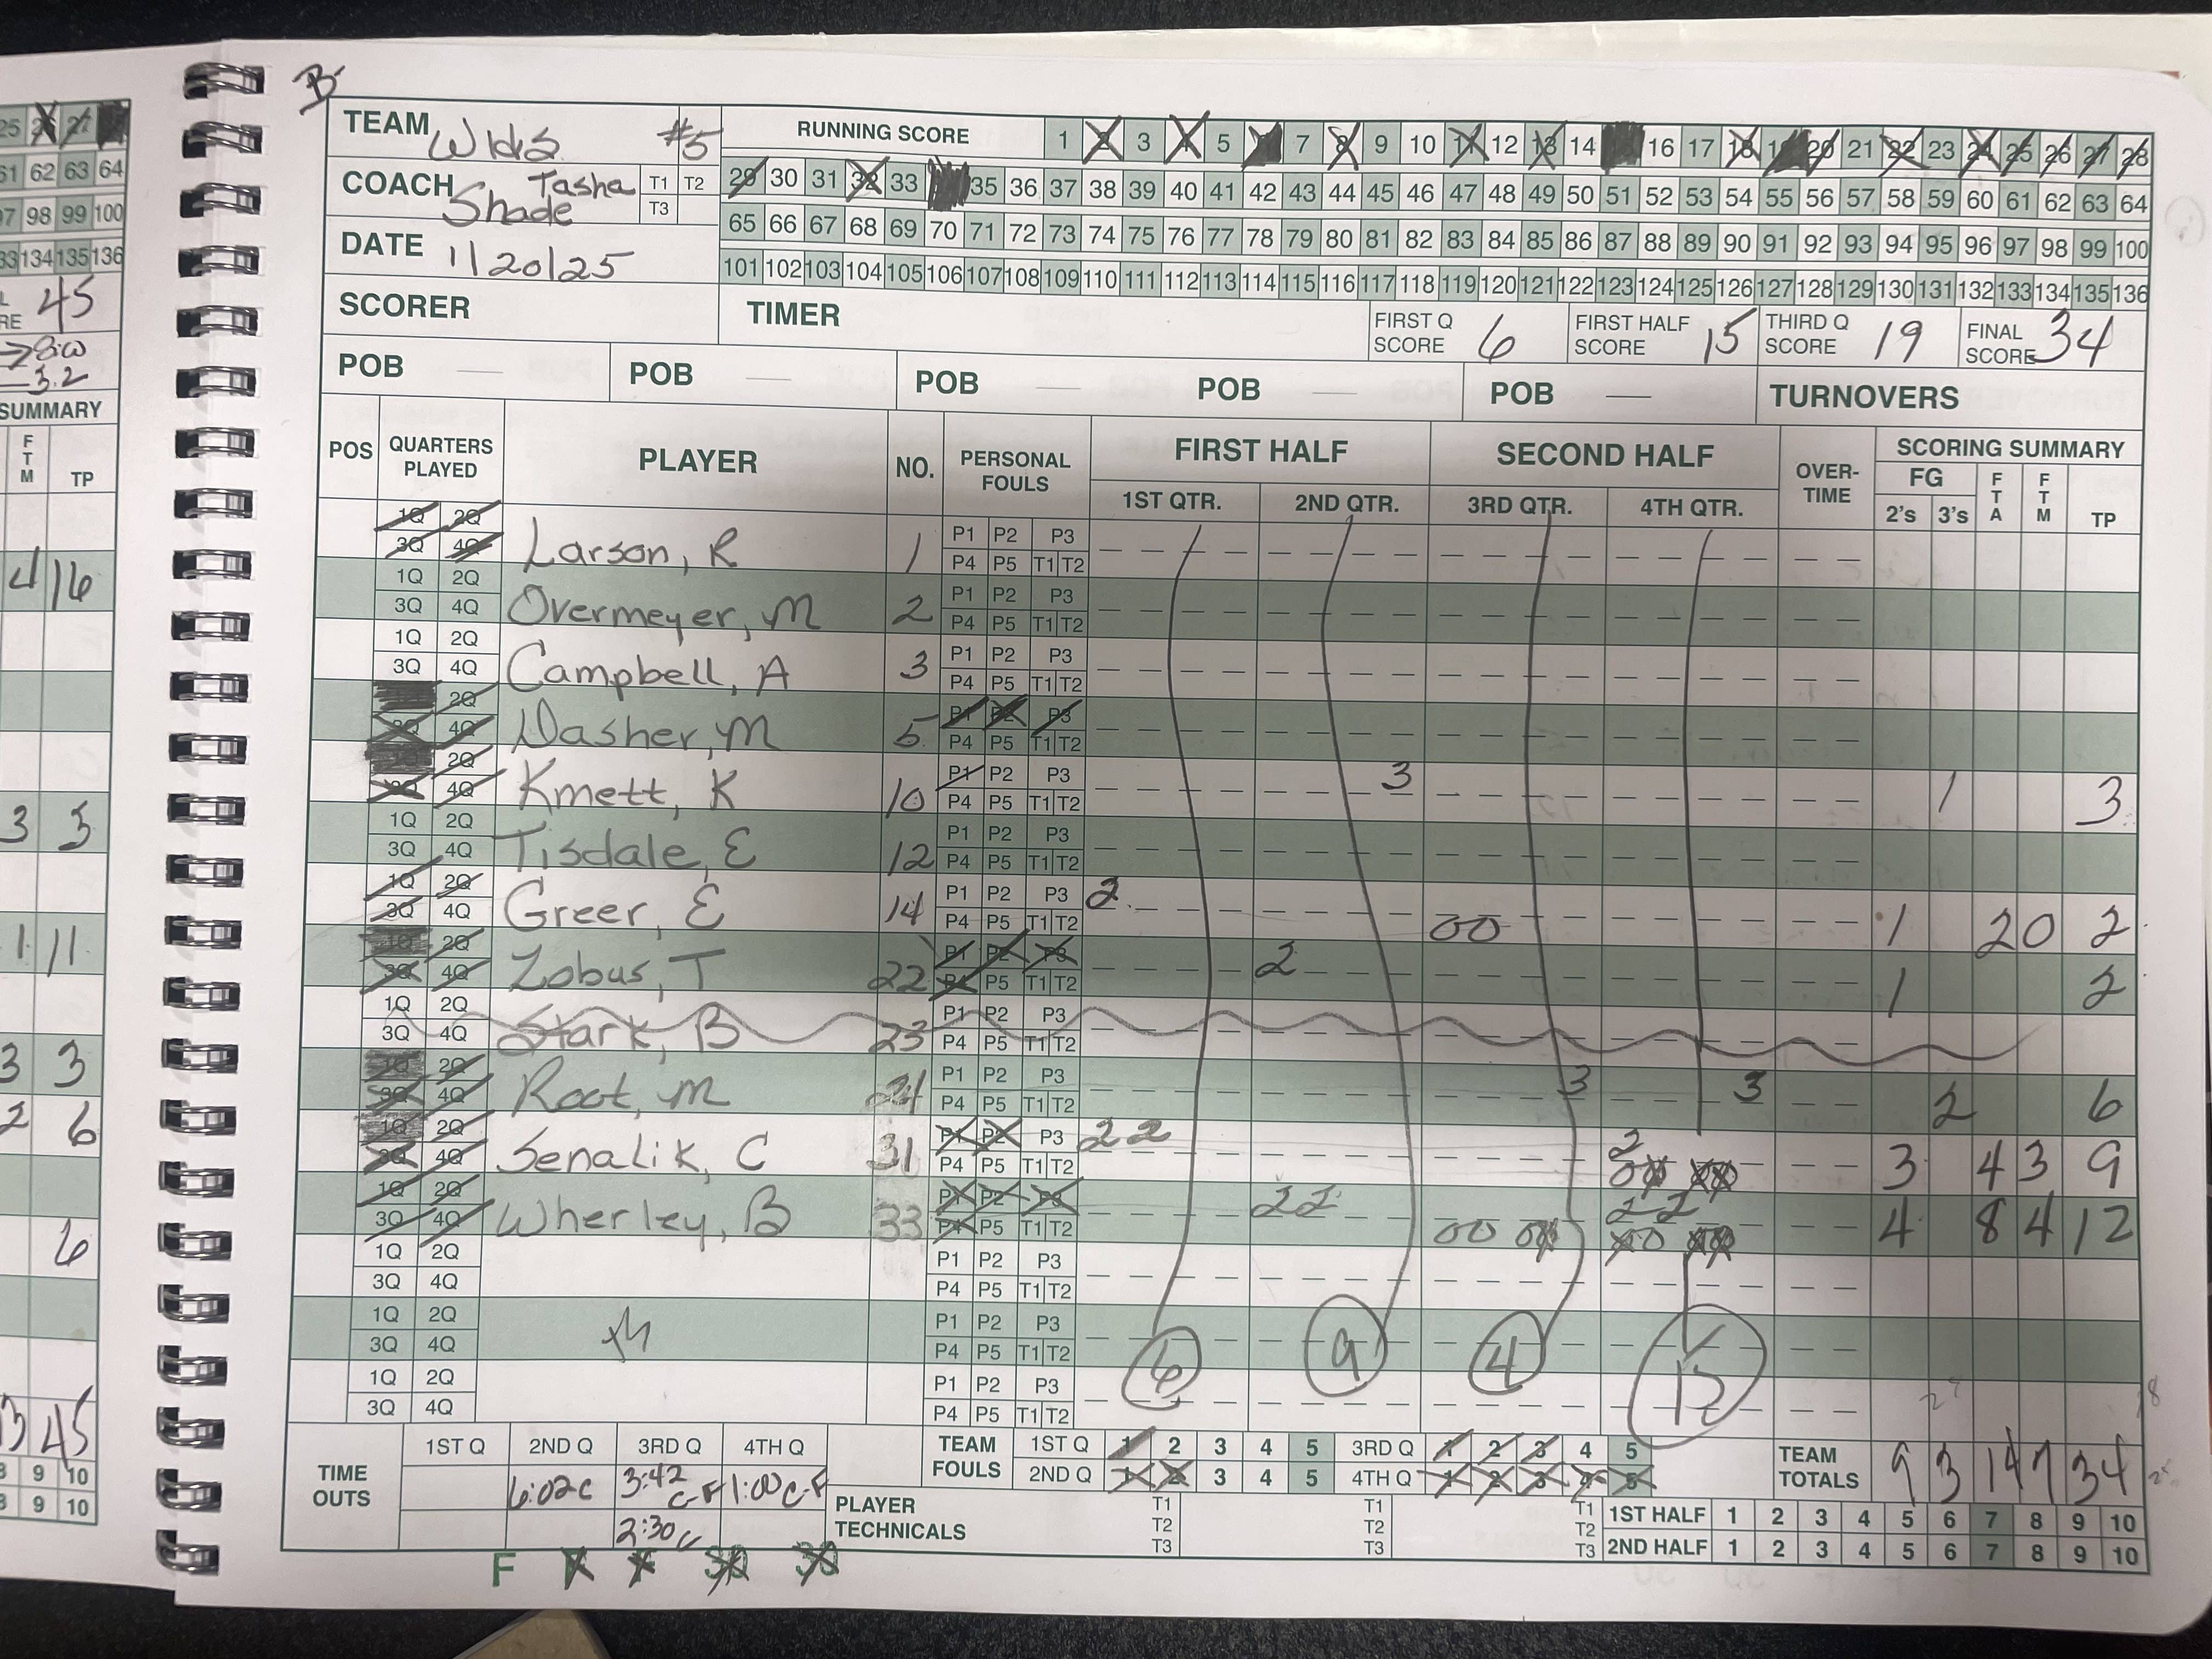 B
TEAM Wlds #5
COACH Tasha Shade T1 T2 T3
DATE 1/20/25
RUNNING SCORE 1 2 3 4 5 7 8 9 10 11 12 13 14 16 17 18 19 20 21 22 23 24 25 26 27 28
29 30 31 32 33 35 36 37 38 39 40 41 42 43 44 45 46 47 48 49 50 51 52 53 54 55 56 57 58 59 60 61 62 63 64
65 66 67 68 69 70 71 72 73 74 75 76 77 78 79 80 81 82 83 84 85 86 87 88 89 90 91 92 93 94 95 96 97 98 99 100
101 102 103 104 105 106 107 108 109 110 111 112 113 114 115 116 117 118 119 120 121 122 123 124 125 126 127 128 129 130 131 132 133 134 135 136
SCORER TIMER FIRST Q SCORE 6 FIRST HALF SCORE 15 THIRD Q SCORE 19 FINAL SCORE 34
POB — POB — POB — POB — POB — TURNOVERS
POS QUARTERS PLAYED PLAYER NO. PERSONAL FOULS FIRST HALF SECOND HALF OVER-TIME SCORING SUMMARY
1ST QTR. 2ND QTR. 3RD QTR. 4TH QTR. FG 2's 3's FTA FTM TP
1Q 2Q 3Q 4Q Larson, R 1 P1 P2 P3 P4 P5 T1 T2
1Q 2Q 3Q 4Q Overmeyer, M 2 P1 P2 P3 P4 P5 T1 T2
1Q 2Q 3Q 4Q Campbell, A 3 P1 P2 P3 P4 P5 T1 T2
2Q 3Q 4Q Dasher, M 5 P1 P2 P3 P4 P5 T1 T2
1Q 2Q 3Q 4Q Kmett, K 10 P1 P2 P3 P4 P5 T1 T2 3 1 3
1Q 2Q 3Q 4Q Tisdale, E 12 P1 P2 P3 P4 P5 T1 T2
1Q 2Q 3Q 4Q Greer, E 14 P1 P2 P3 P4 P5 T1 T2 2 00 1 2 0 2
1Q 2Q 3Q 4Q Zobus, T 22 P1 P2 P3 P4 P5 T1 T2 2 1 2
1Q 2Q 3Q 4Q Stark, B 23 P1 P2 P3 P4 P5 T1 T2
1Q 2Q 3Q 4Q Root, M 24 P1 P2 P3 P4 P5 T1 T2 3 3 2 6
1Q 2Q 3Q 4Q Senalik, C 31 P1 P2 P3 P4 P5 T1 T2 2 2 2 00 00 3 4 3 9
1Q 2Q 3Q 4Q Wherley, B 33 P1 P2 P3 P4 P5 T1 T2 2 2 00 00 2 2 00 00 4 8 4 12
1Q 2Q 3Q 4Q P1 P2 P3 P4 P5 T1 T2
1Q 2Q 3Q 4Q P1 P2 P3 P4 P5 T1 T2 6 9 4 15
1Q 2Q 3Q 4Q P1 P2 P3 P4 P5 T1 T2
TIME OUTS 1ST Q 2ND Q 3RD Q 4TH Q
6:02 C 3:42 C-F 1:00 C-F
2:30 C
TEAM FOULS 1ST Q 1 2 3 4 5 3RD Q 1 2 3 4 5
2ND Q 1 2 3 4 5 4TH Q 1 2 3 4 5
TEAM TOTALS 9 3 14 7 34
PLAYER TECHNICALS T1 T2 T3 T1 T2 T3 T1 T2 T3
1ST HALF 1 2 3 4 5 6 7 8 9 10
2ND HALF 1 2 3 4 5 6 7 8 9 10
F F F 30 30
25 26 27
61 62 63 64
97 98 99 100
133 134 135 136
45
8:00
3.2
SUMMARY
FTM TP
4 16
3 3
1 11
3 3
2 6
6
13 45
8 9 10
8 9 10